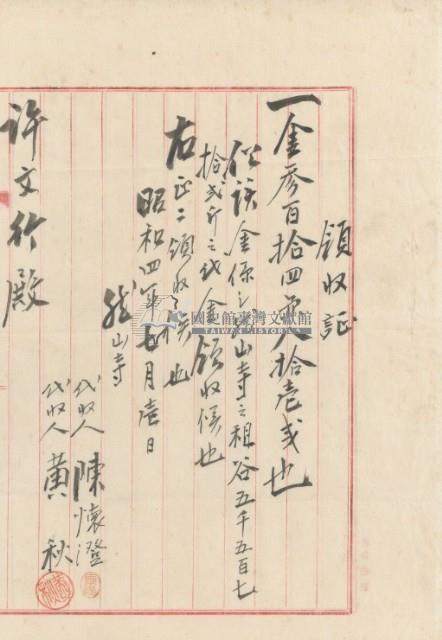 領收証
一金參百拾四員拾壱戔也
但該金係之龍山寺之租谷五千五百七
拾貳斤之代金領收候也
右正ニ領收候也
昭和四年七月壱日
龍山寺
代收人 陳懷澄
代收人 黃秋
許文行殿
國史館臺灣文獻館
TAIWAN HISTORICA